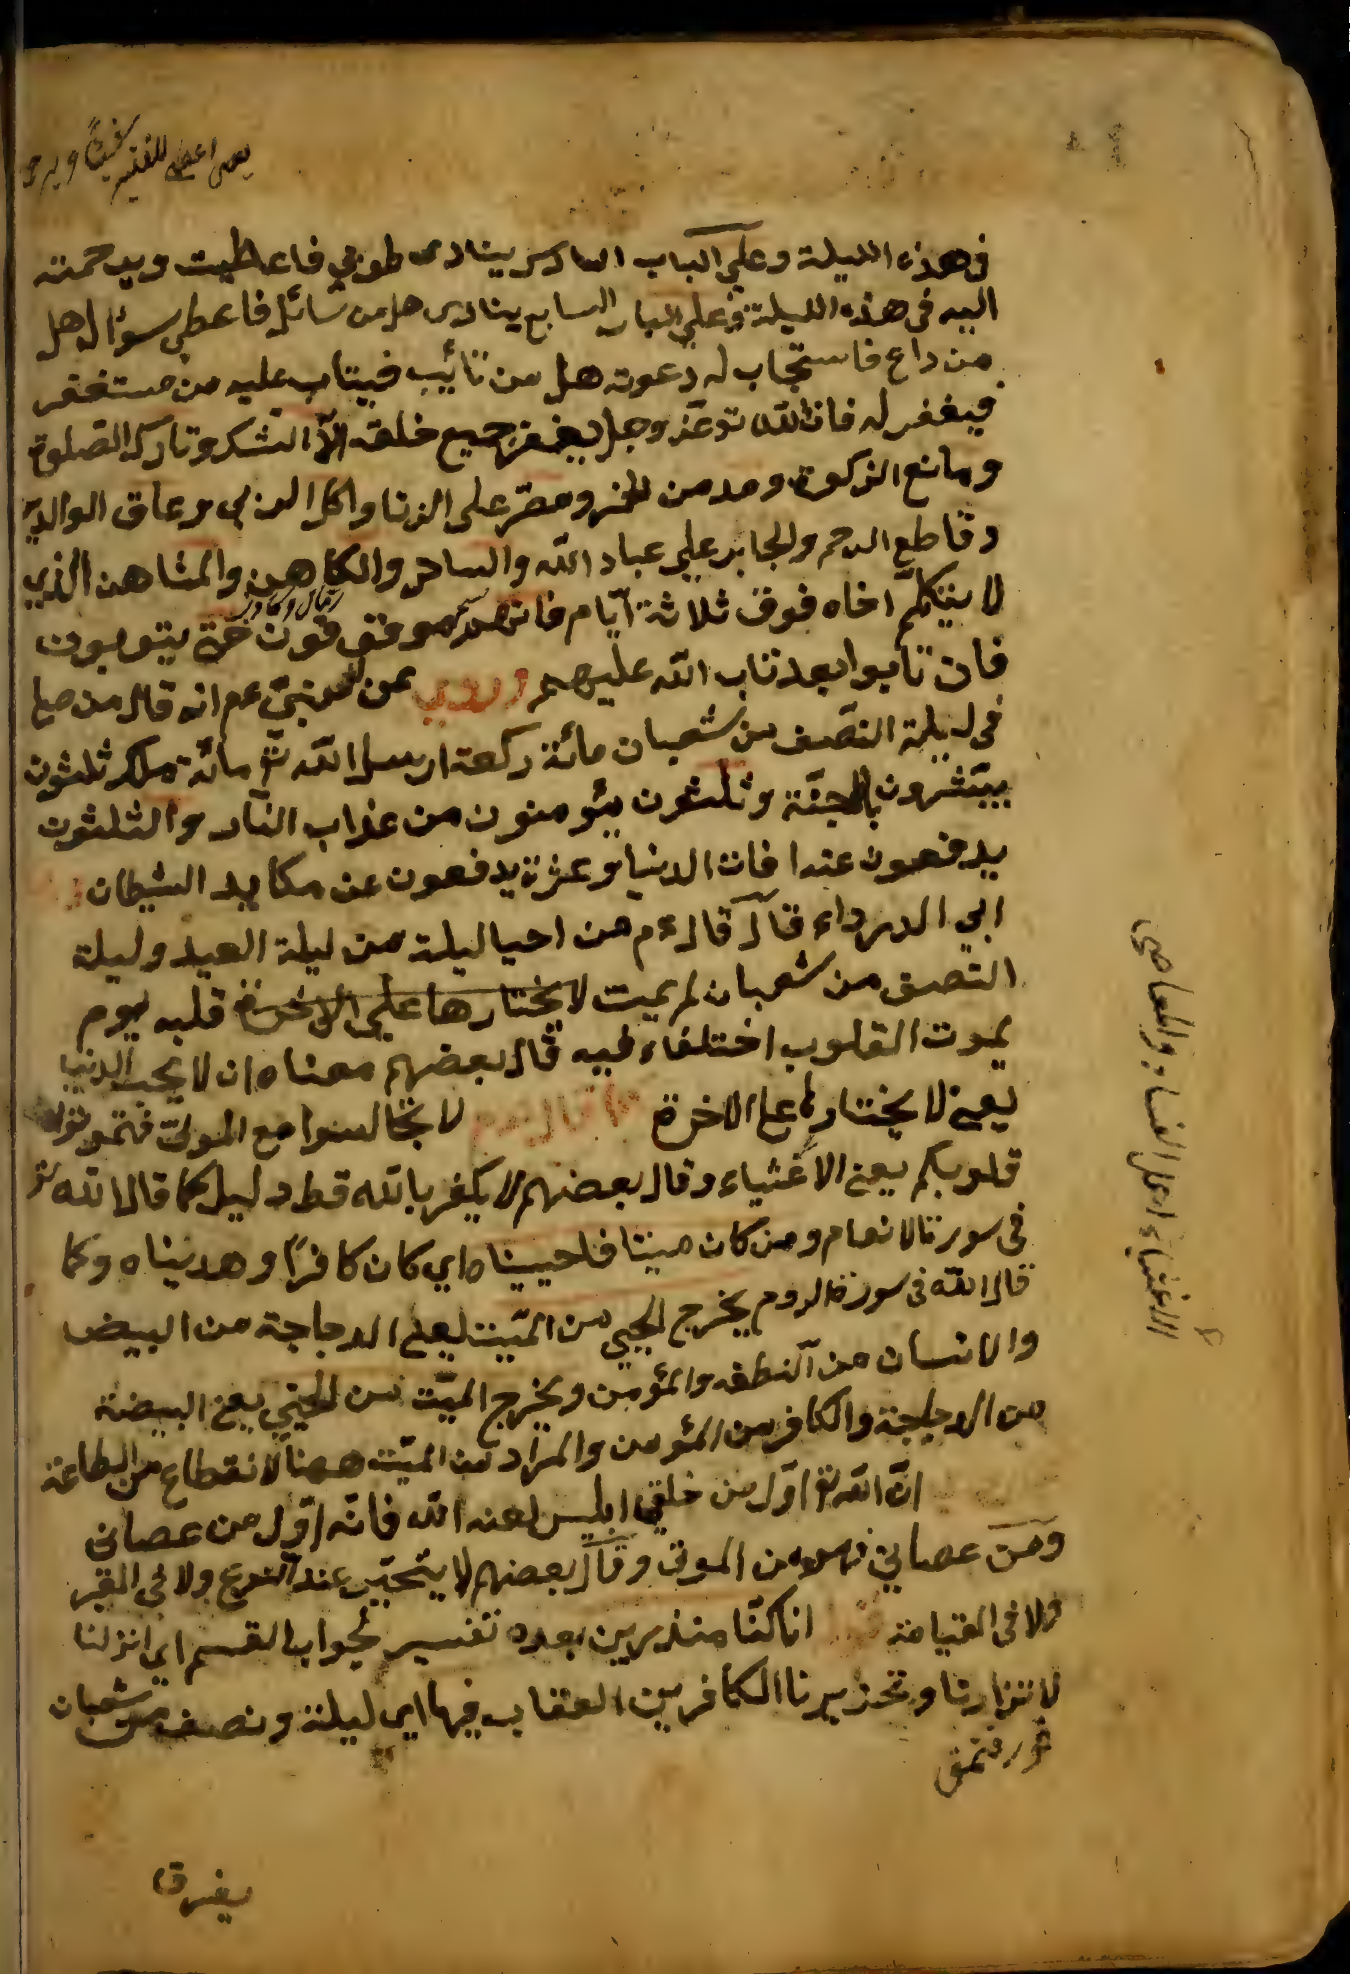 يعنى اعطى للفقير شيئا ويرحم
فى هذه الليلة وعلى الباب السادس ينادى طوبى فاعطيت ويد حمته
اليه فى هذه الليلة وعلى الباب السابع ينادى هل من سائل فاعطى سؤاله هل
من داع فاستجاب له دعوته هل من تائب فيتاب عليه من مستغفر
فيغفر له فان الله تع عز وجل يغفر جميع خلقه الا المشكر وتارك الصلوة
ومانع الزكوة ومدمن الخمر ومصر على الزنا واكل الربى وعاق الوالدين
وقاطع الرحم والجابر على عباد الله والساحر والكاهن والمشاهن الذى
لا يتكلم اخاه فوق ثلاثة ايام فانهم موقفون حتى يتوبون
فان تابوا بعد تاب الله عليهم وروى عن النبى عم انه قال من صلى
فى ليلة النصف من شعبان مائة ركعة ارسل الله تع مائة ملك ثلثون
يبشرون بالجنة وثلثون يؤمنون من عذاب النار والثلثون
يدفعون عنه افات الدنيا وعشرة يدفعون عن مكايد الشيطان
ابى الدرداء قال قال عم من احيا ليلة من ليلة العيد وليلة
النصف من شعبان لم يمت لا يختارها على الاخرة قلبه يوم
يموت القلوب اختلفاء فيه قال بعضهم معناه ان لا يحب الدنيا
يعنى لا يختارها على الاخرة كما قال عم لا تجالسوا مع الموتى فتموتوا
قلوبكم يعنى الاغنياء وقال بعضهم لا يكفر بالله قط دليل كما قال الله تع
فى سورة الانعام ومن كان ميتا فاحييناه اى كان كافرا وهديناه وكما
قال الله فى سورة الروم يخرج الحى من الميت يعنى الدجاجة من البيض
والانسان من النطفه والمؤمن ويخرج الميت من الحى يعنى البيضة
من الدجاجة والكافر من المؤمن والمراد من الميت ههنا لانقطاع من الطاعة
ان الله تع اول من خلقى ابليس لعنه الله فانه اول من عصانى
ومن عصانى فهو من الموتى وقال بعضهم لا يتحير عند النزع ولا فى القبر
ولا فى القيامة انا كنا منذرين بعده تفسير لجواب القسم اى انزلنا
لانزارنا وتحذيرنا الكافرين العقاب فيها اى ليلة ونصف من شعبان
يفرق
الاغنياء اهل الفساد والمعاصى